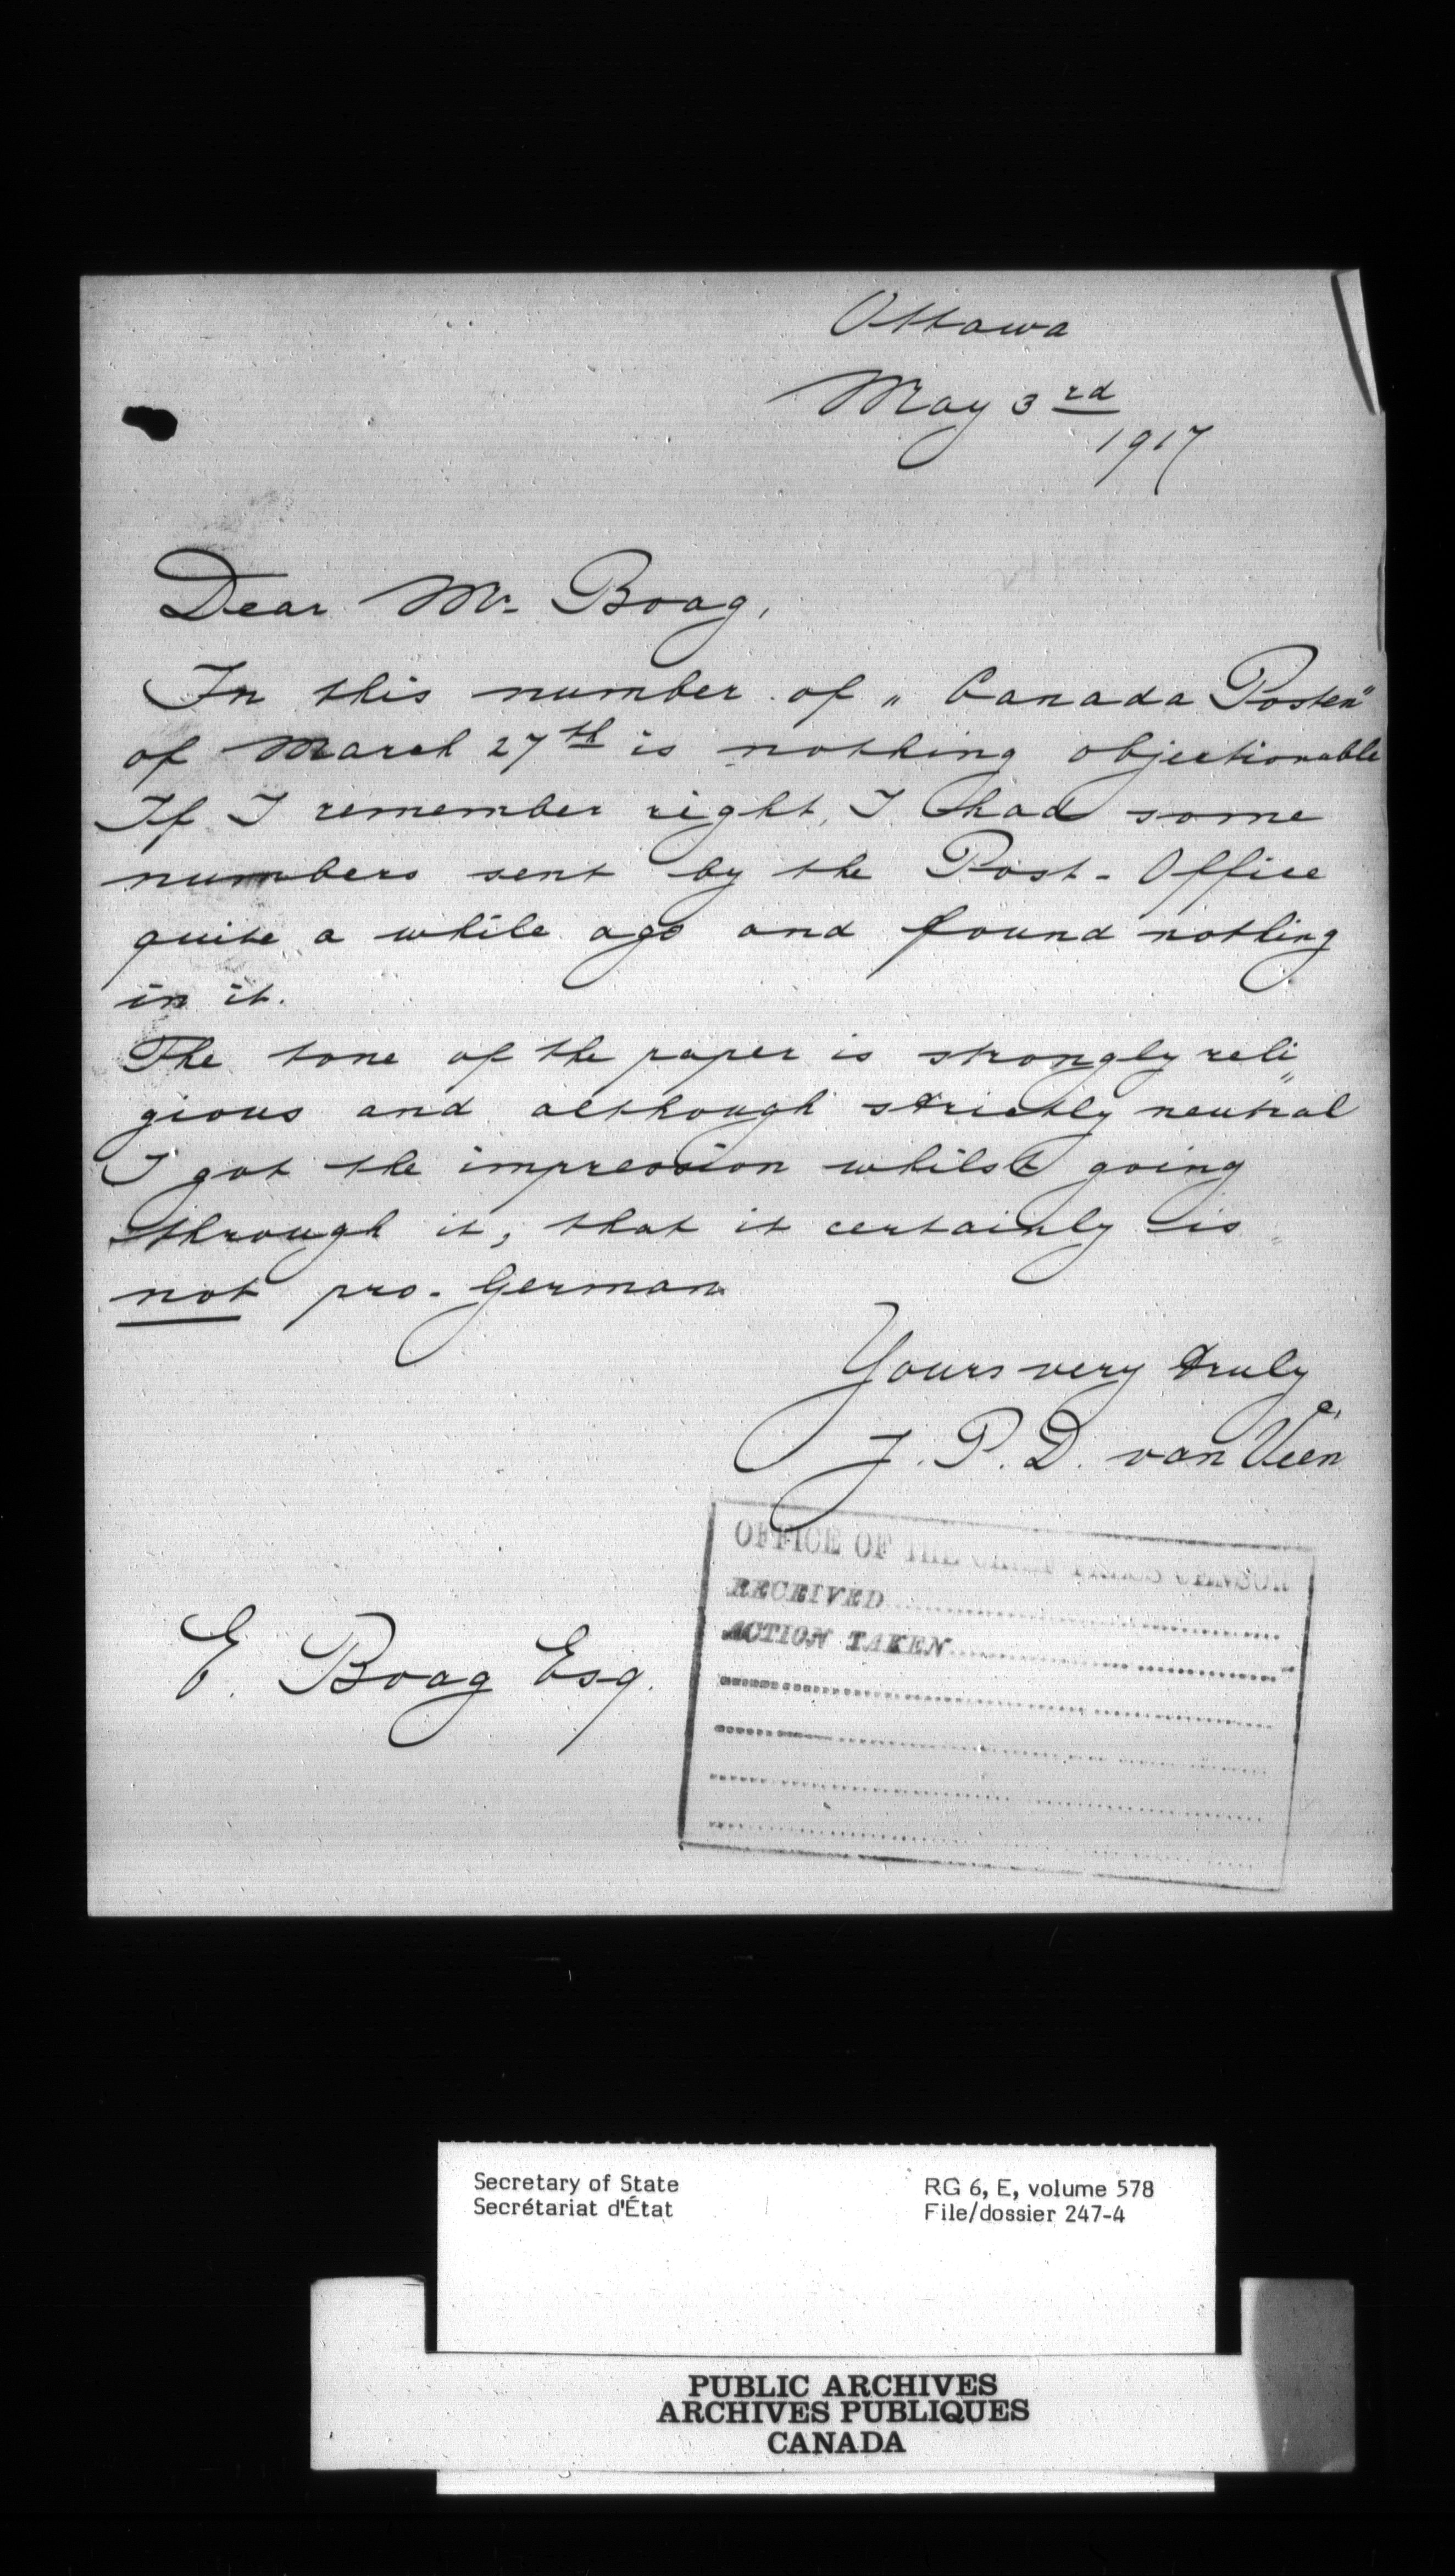 Ottawa
May 3rd
1917
Dear Mr. Boag,
In this number of „Canada Posten"
of March 27th is nothing objectionable
If I remember right, I had some
numbers sent by the Post-Office
quite a while ago and found nothing
in it.
The tone of the paper is strongly reli„
gious and although strictly neutral
I got the impression whilst going
through it, that it certainly is
not pro-German.
Yours very truly,
J. P. D. van Veen
E. Boag Esq.
OFFICE OF THE CHIEF PRESS CENSOR
RECEIVED
ACTION TAKEN
Secretary of State
Secrétariat d'État
RG 6, E, volume 578
File/dossier 247-4
PUBLIC ARCHIVES
ARCHIVES PUBLIQUES
CANADA